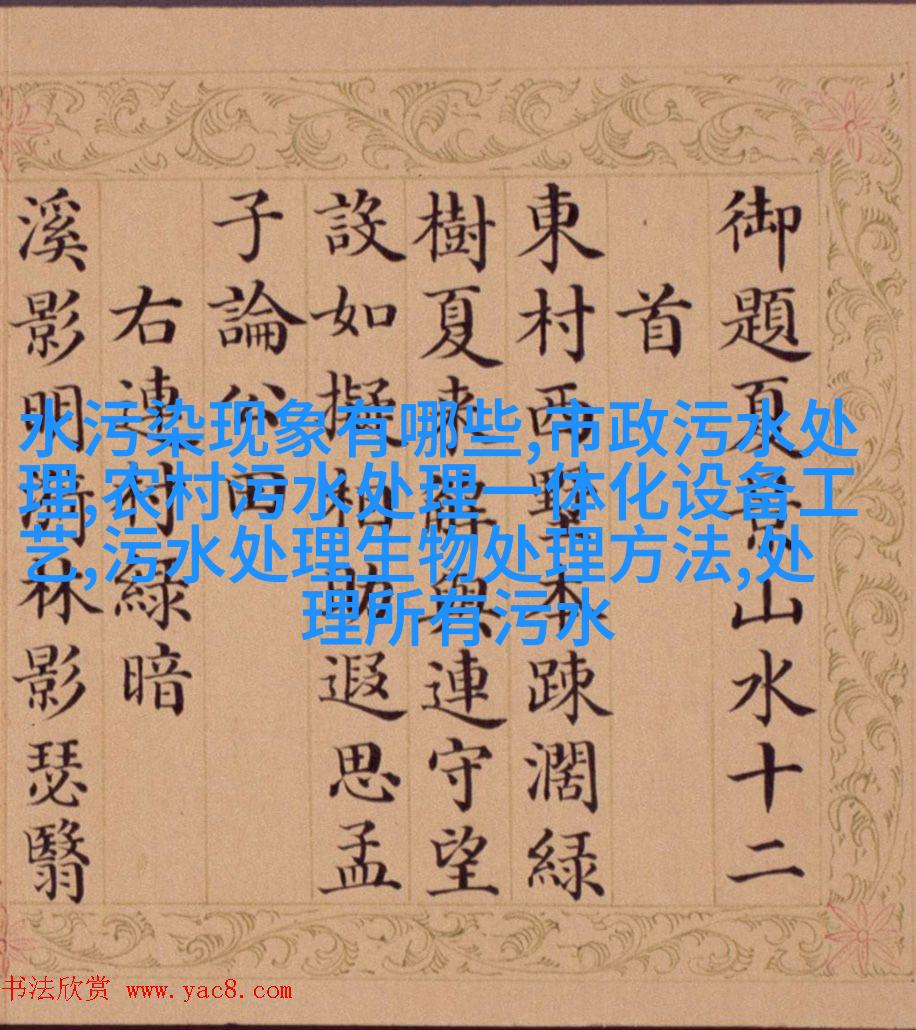 御題夏景山水十二
首
東村西墅本疎濶緑
樹夏來解與連守望
設如擬相助遐思孟
子論公田
右連村緑暗
溪影明漪林影瑟翳
水污染现象有哪些,市政污水处
理,农村污水处理一体化设备工
艺,污水处理生物处理方法,处
理所有污水
书法欣赏 www.yac8.com